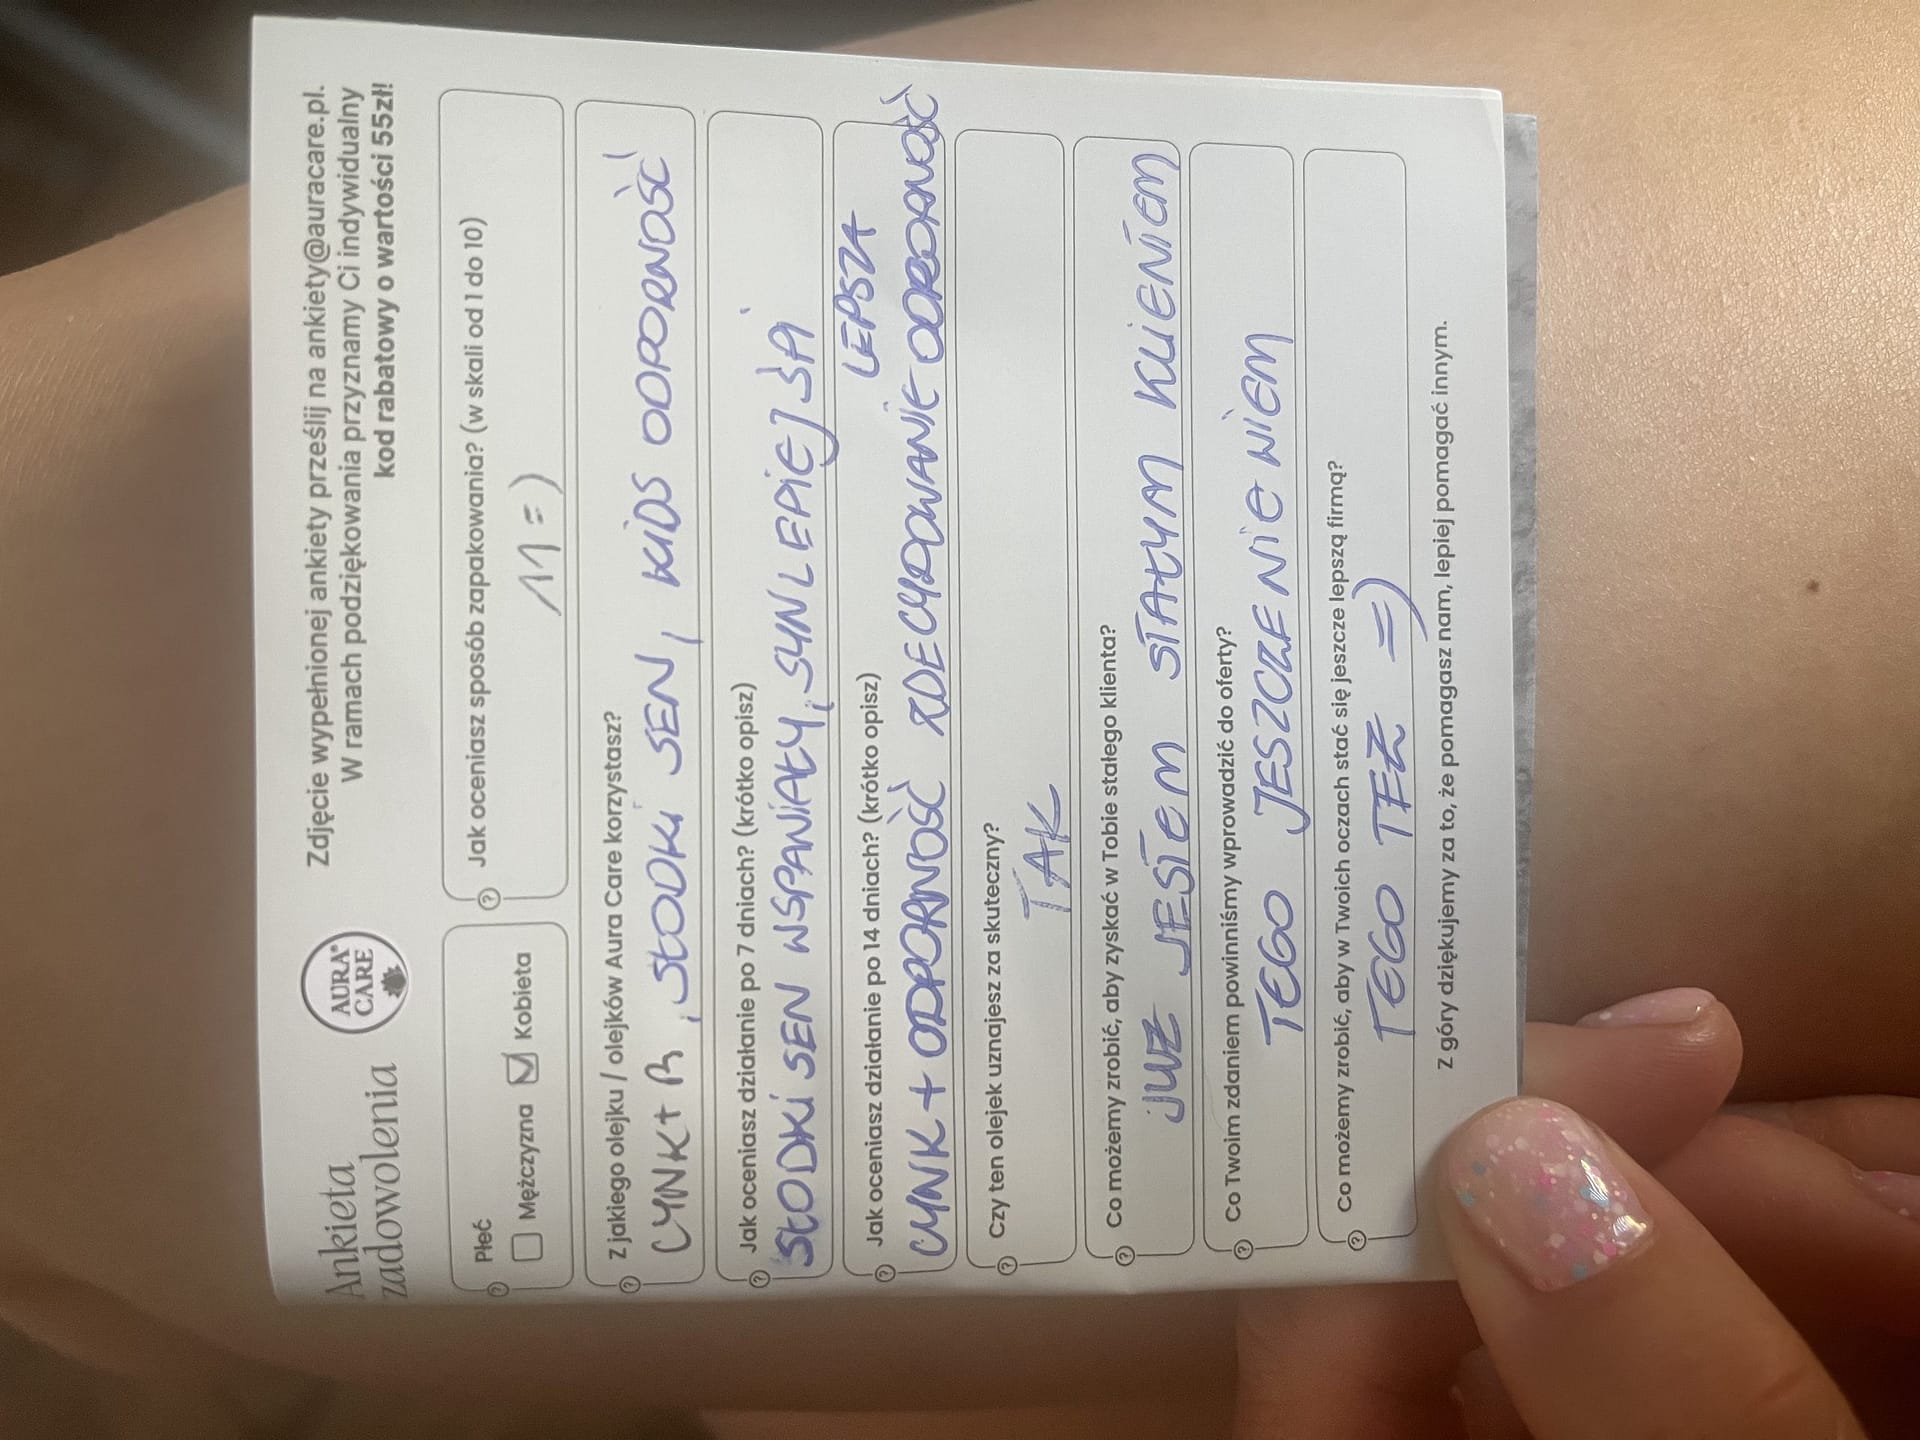 Ankieta
zadowolenia
AURA®
CARE
Zdjęcie wypełnionej ankiety prześlij na ankiety@auracare.pl.
W ramach podziękowania przyznamy Ci indywidualny
kod rabatowy o wartości 55zł!
? Płeć
Mężczyzna Kobieta
? Jak oceniasz sposób zapakowania? (w skali od 1 do 10)
11 =)
? Z jakiego olejku / olejków Aura Care korzystasz?
CYNK+ B, SŁODKI SEN, KIDS ODPORNOŚĆ
? Jak oceniasz działanie po 7 dniach? (krótko opisz)
SŁODKI SEN WSPANIAŁY, SYN LEPIEJ ŚPI
? Jak oceniasz działanie po 14 dniach? (krótko opisz)
LEPSZA
CYNK + ODPORNOŚĆ ZDECYDOWANIE ODPORNOŚĆ
? Czy ten olejek uznajesz za skuteczny?
TAK
? Co możemy zrobić, aby zyskać w Tobie stałego klienta?
JUŻ JESTEM STAŁYM KLIENTEM
? Co Twoim zdaniem powinniśmy wprowadzić do oferty?
TEGO JESZCZE NIE WIEM
? Co możemy zrobić, aby w Twoich oczach stać się jeszcze lepszą firmą?
TEGO TEŻ =)
Z góry dziękujemy za to, że pomagasz nam, lepiej pomagać innym.